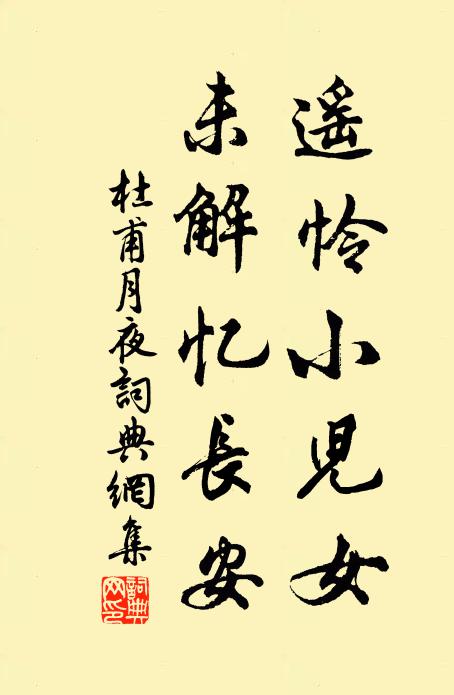 遥怜小兒女
未解忆長安
杜甫月夜詞典網集